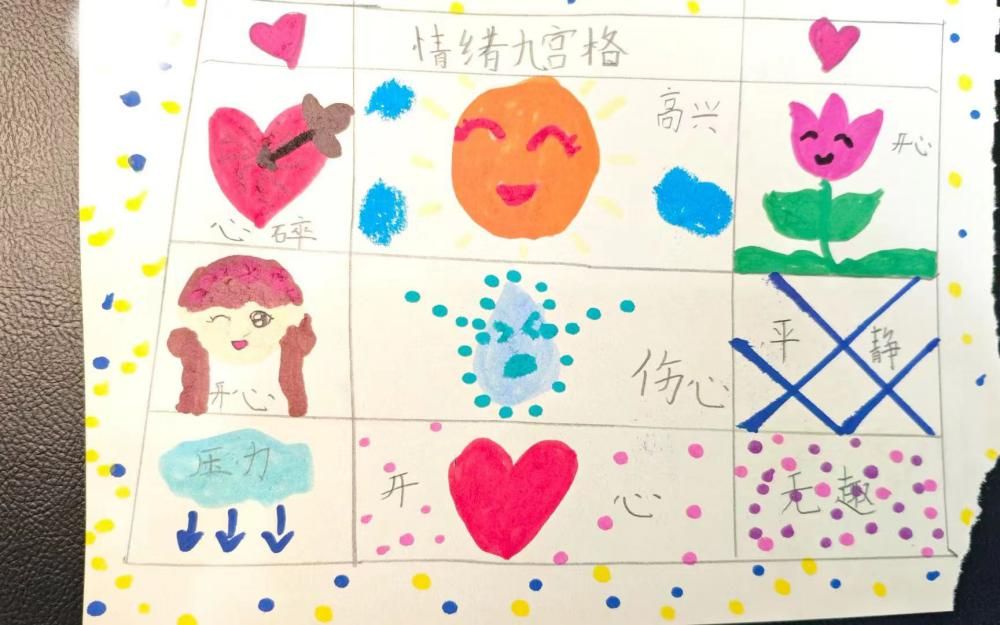 情绪九宫格
心碎
高兴
开心
开心
伤心
平静
压力
开心
无趣